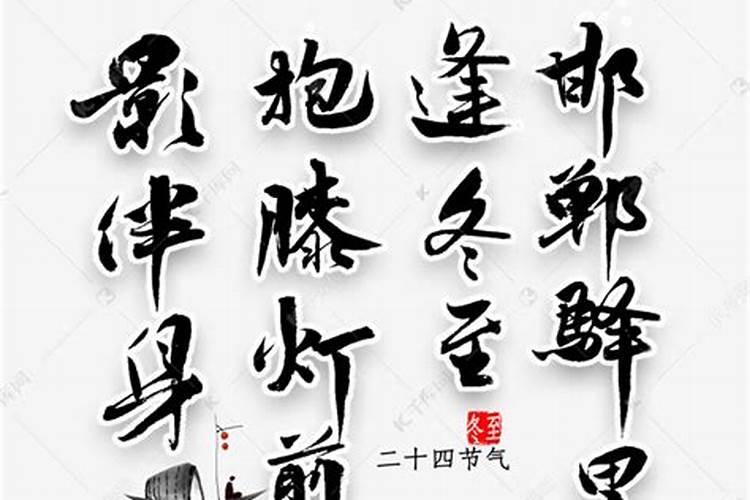 邯郸驿里
逢冬至
抱膝灯前
影伴身
冬至
二十四节气